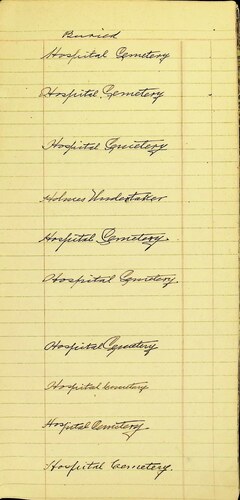 Buried
Hospital Cemetery
Hospital Cemetery
Hospital Cemetery
Holmes Undertaker
Hospital Cemetery.
Hospital Cemetery.
Hospital Cemetery
Hospital Cemetery
Hospital Cemetery.
Hospital Cemetery.